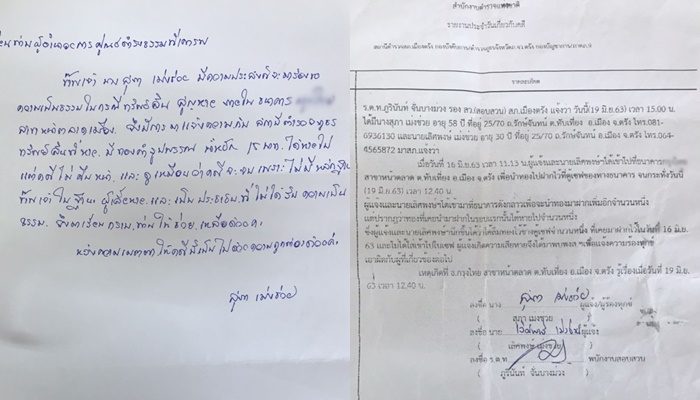 เรียนท่านผู้อำนวยการศูนย์ดำรงธรรมที่เคารพ
ข้าพเจ้า นาง สุภา เม่งช่วย มีความประสงค์จะมาร้องขอ
ความเป็นธรรมในกรณีทรัพย์สิน สูญหาย ภายในธนาคาร
สาขาหน้าตลาดเมือง ซึ่งมีการแจ้งความกับ สถานีตำรวจภูธร
ทรัพย์สินที่หาย มีทองคำรูปพรรณ น้ำหนัก 15 บาท ได้หายไป
แต่คดีไม่คืบหน้า และดูเหมือนว่าคดีจะจบ เพราะไม่มี
ข้าพเจ้าในฐานะผู้เสียหาย และเป็นประชาชนที่ไม่ได้รับความเป็น
ธรรม จึงมาเรียนท่านให้ช่วยเหลือด้วยค่ะ
หวังความเมตตาให้คดีนี้เป็นไปด้วยความถูกต้องด้วยค่ะ
สุภา เม่งช่วย
สำนักงานตำรวจแห่งชาติ
รายงานประจำวันเกี่ยวกับคดี
สถานีตำรวจภูธรเมืองตรัง กองบังคับการตำรวจภูธรจังหวัดตรัง กองบัญชาการตำรวจภูธรภาค.9
รายละเอียด
ร.ต.ท.ภูรินันท์ จันบางมวง รอง สว.(สอบสวน) สภ.เมืองตรัง แจ้งว่า วันนี้(19 มิ.ย.63) เวลา 15.00 น.
ได้มีนางสุภา เมงช่วย อายุ 58 ปี ที่อยู่ 25/70 ถ.รักษ์จันทน์ ต.ทับเที่ยง อ.เมืองตรัง จ.ตรัง โทร.081-
0936130 และนายเลิศพงษ์ เมงช่วย อายุ 30 ปี ที่อยู่ 25/70 ถ.รักษ์จันทน์ อ.เมืองตรัง จ.ตรัง โทร.064-
4565872 มาสภ.แจ้งว่า
เมื่อวันที่ 16 มิ.ย.63 เวลา 11.13 น. ผู้แจ้งและนายเลิศพงษ์ฯได้เข้าไปที่ธนาคาร
สาขาหน้าตลาด ต.ทับเที่ยง อ.เมือง จ.ตรัง เพื่อนำทองไปฝากไว้ที่ตู้เซฟของทางธนาคาร จนกระทั่งวันนี้
(19 มิ.ย.63) เวลา 12.40 น.
ผู้แจ้งและนายเลิศพงษ์ฯได้เข้ามาที่ธนาคารดังกล่าวเพื่อจะนำทองมาฝากเพิ่มอีกจำนวนหนึ่ง
แต่ปรากฏว่าทองที่เคยนำมาฝากในรอบแรกนั้นได้หายไปจำนวนหนึ่ง
63 และไม่ได้ใส่เข้าไปในเซฟ ผู้แจ้งเกิดความเสียหายจึงได้มาพบพงส.ฯเพื่อแจ้งความร้องทุกข์
เอาผิดกับผู้ที่เกี่ยวข้องต่อไป
เหตุเกิดที่ ธ.กรุงไทย สาขาหน้าตลาด ต.ทับเที่ยง อ.เมือง จ.ตรัง รู้เรื่องเมื่อวันที่ 19 มิ.ย.
63 เวลา 12.40 น.
ลงชื่อ สุภา เมงช่วย ผู้แจ้ง/ผู้ร้องทุกข์
( สุภา เมงช่วย )
ลงชื่อ นาย เลิศพงษ์ เมงช่วย ผู้แจ้ง
( เลิศพงษ์ เมงช่วย )
ลงชื่อ ร.ต.ท. พนักงานสอบสวน
( ภูรินันท์ จันบางมวง )